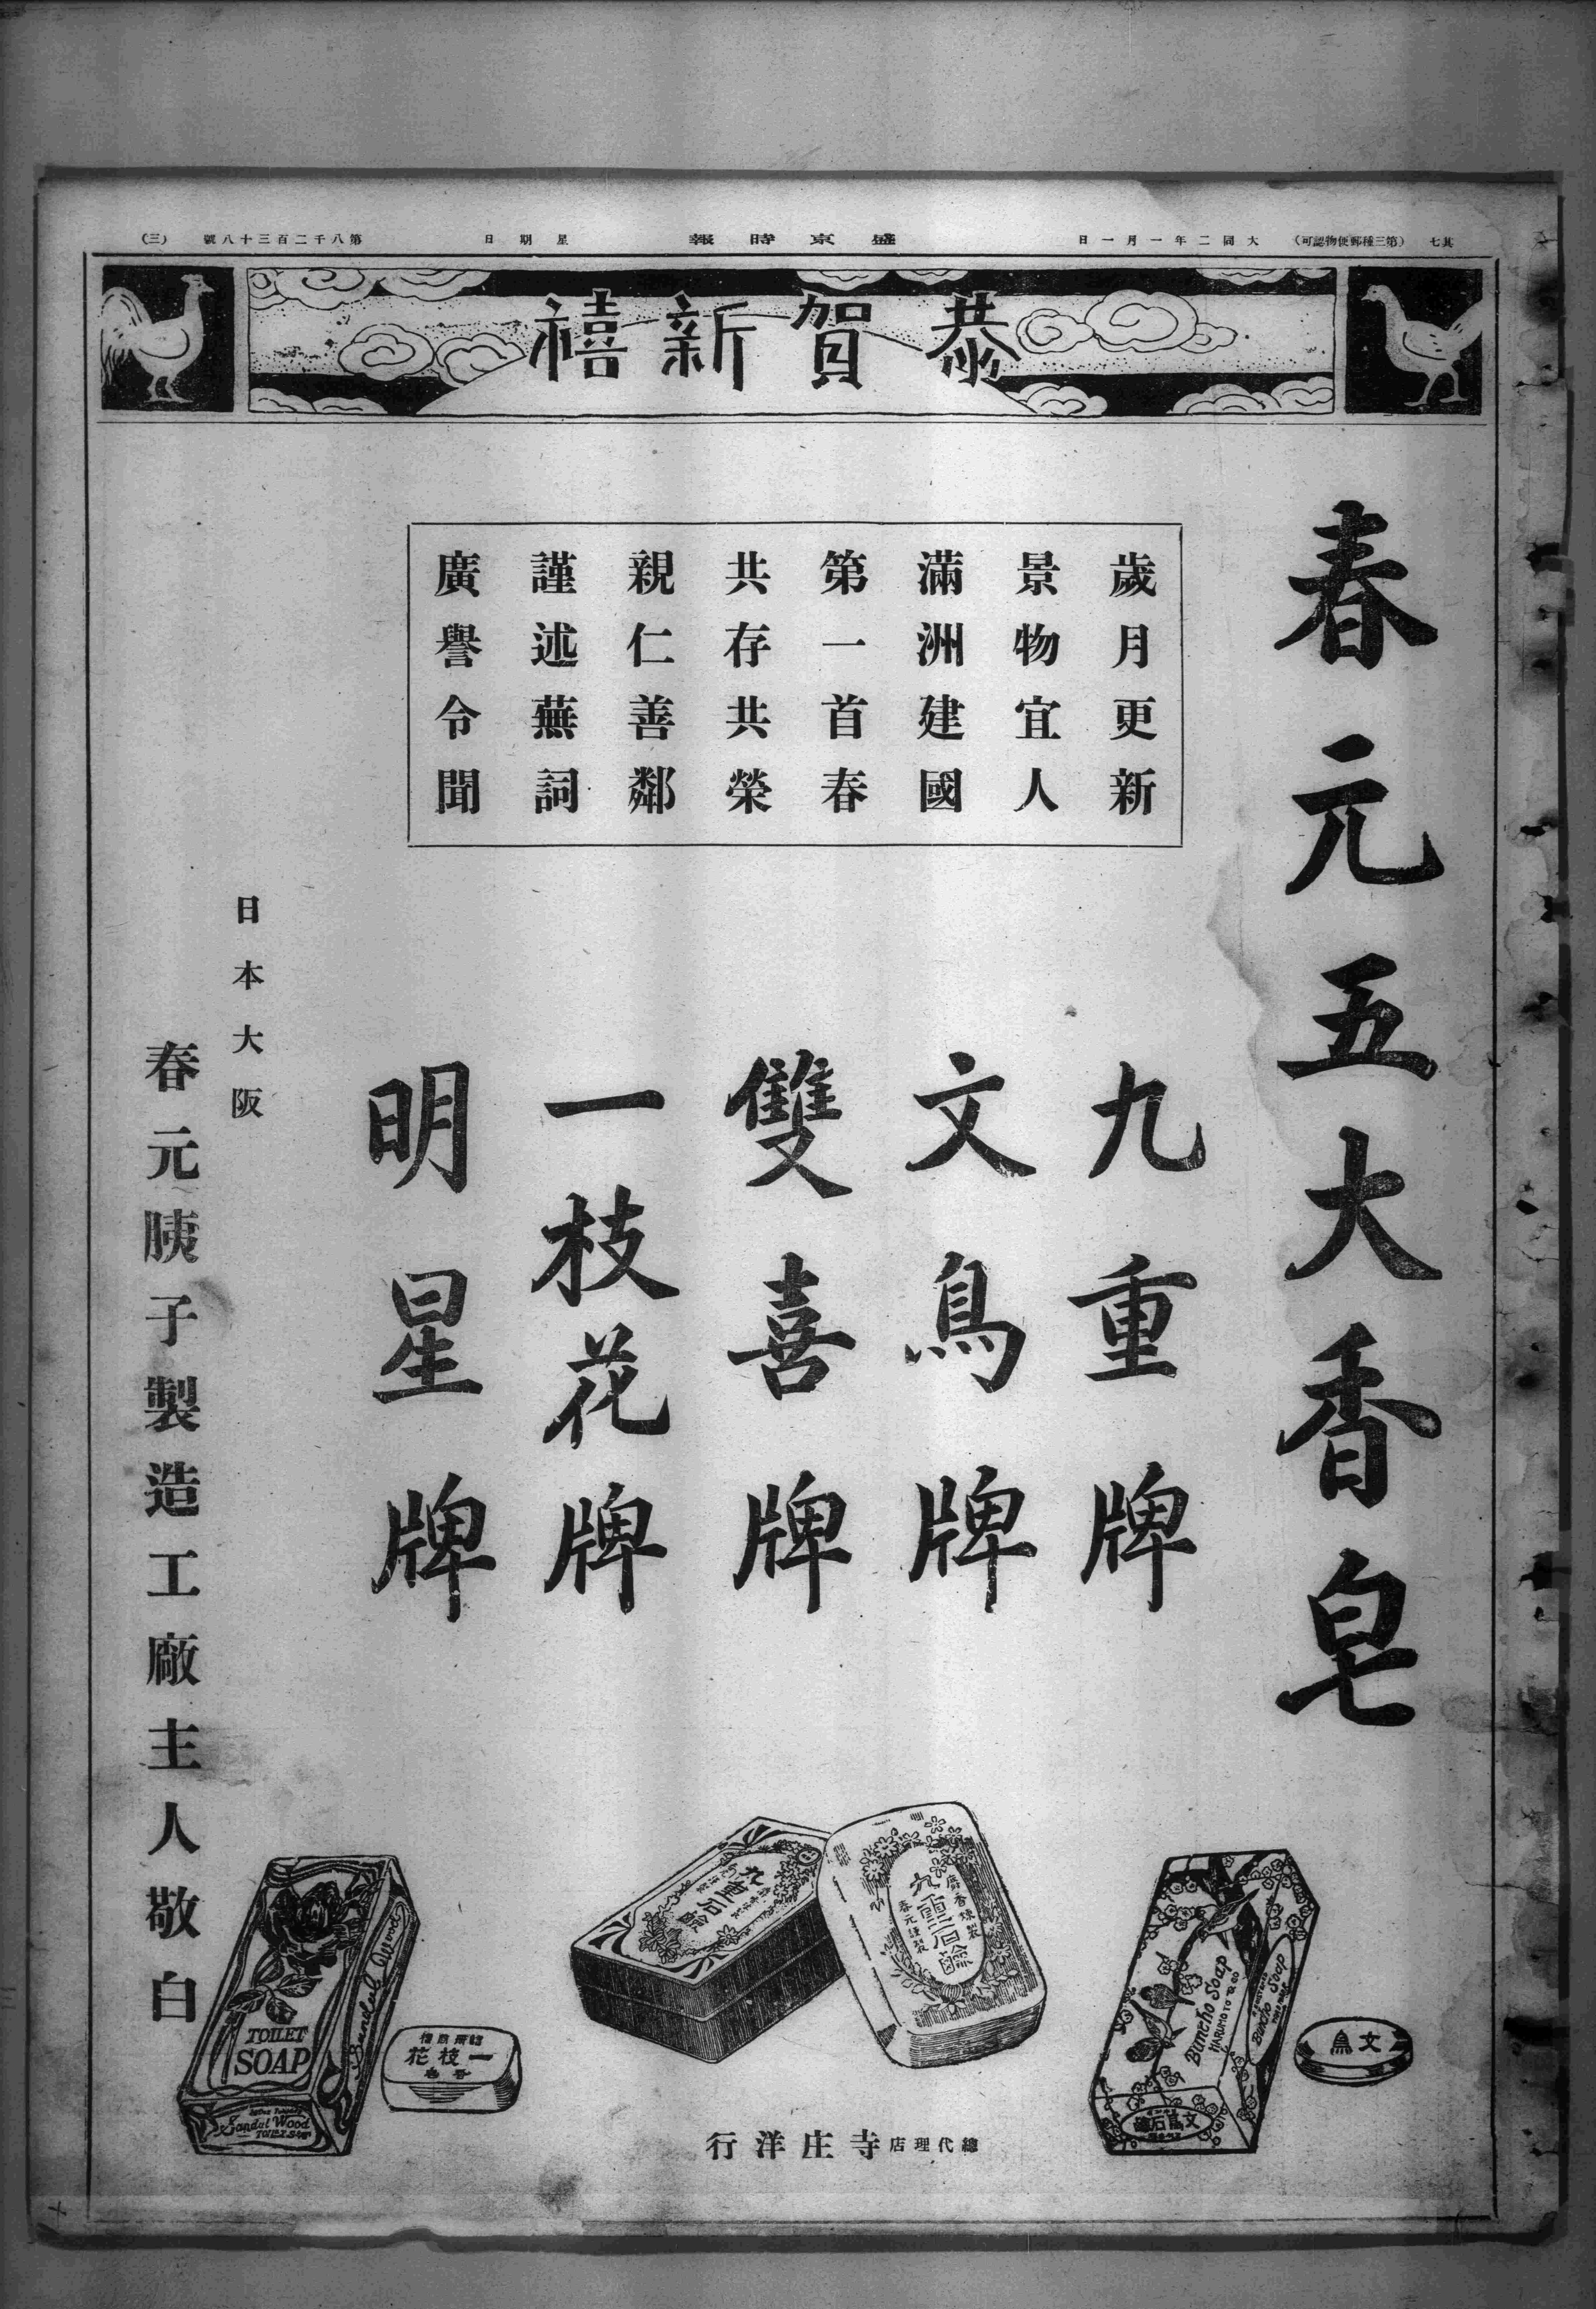 其七
(第三種郵便物認可)
大同二年一月一日
盛京時報
星期日
第八千二百三十八號
(三)
恭賀新禧
春元五大香皂
歲月更新
景物宜人
滿洲建國
第一首春
共存共榮
親仁善鄰
謹述蕪詞
廣譽令聞
九重牌
文鳥牌
雙喜牌
一枝花牌
明星牌
日本大阪
春元胰子製造工廠主人敬白
Buncho Soap
HARUMOTO & CO
Buncho Soap
文鳥石鹼
文鳥
九重石鹼
九重石鹼
春元謹製
TOILET
SOAP
Sandal Wood
TOILET SOAP
一枝花
香皂
總代理店寺庄洋行